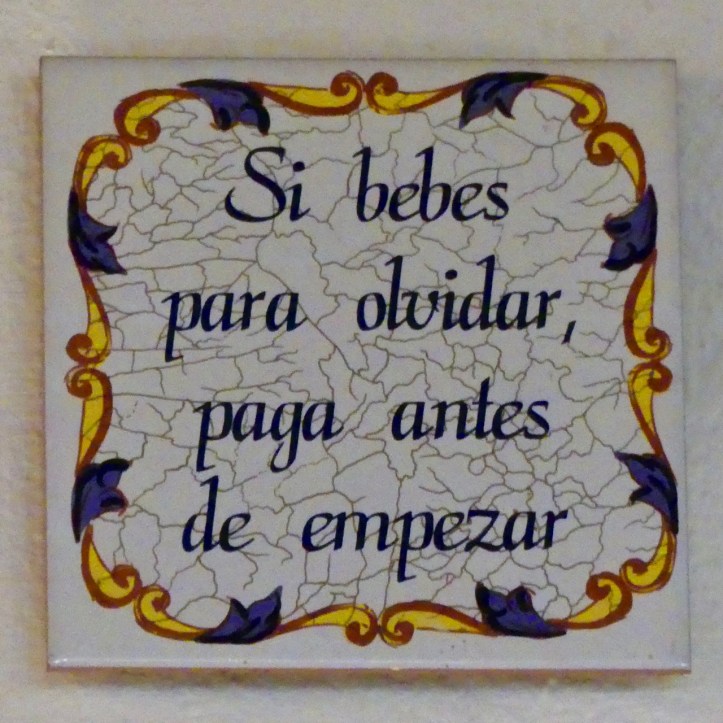 Si bebes
para olvidar,
paga antes
de empezar